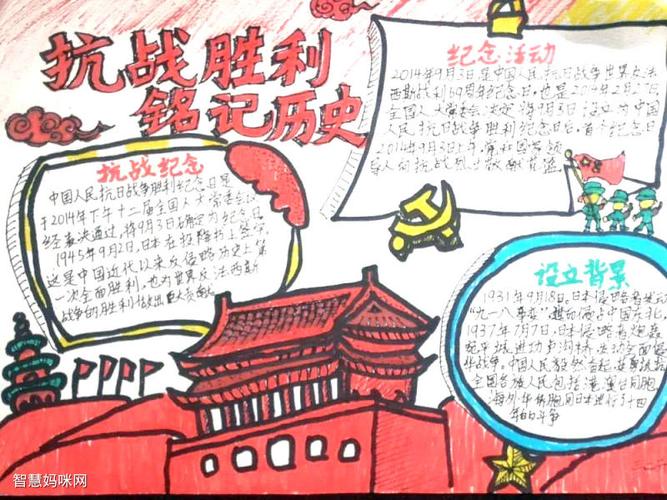 抗战胜利
铭记历史
纪念活动
2014年9月3日是中国人民抗日战争世界反法
西斯战利69周年纪念日,也是2014年2月27日
全国人大常委会决定将9月3日设立为中国
人民抗日战争胜利纪念日后,首个纪念日
2014年9月3日上午,党和国家领
导人向抗战烈士敬献花篮
抗战纪念
中国人民抗日战争胜利纪念日是
于2014年下午十二届全国人大常委会
经表决通过,将9月3日确定为纪念日
1945年9月2日,日本在投降书上签字
这是中国近代以来反侵略历史上第
一次全面胜利,也为世界反法西斯
战争的胜利做出巨大贡献
设立背景
1931年9月18日,日本侵略者
"九一八事变"
1937年7月7日,日本侵略者炮轰
宛平城进攻卢沟桥,发动全面侵
华战争。中国人民毅然奋起,
全国各族人民包括港澳台同胞
海外华侨胞同日本进行了十四
年的斗争
智慧妈咪网